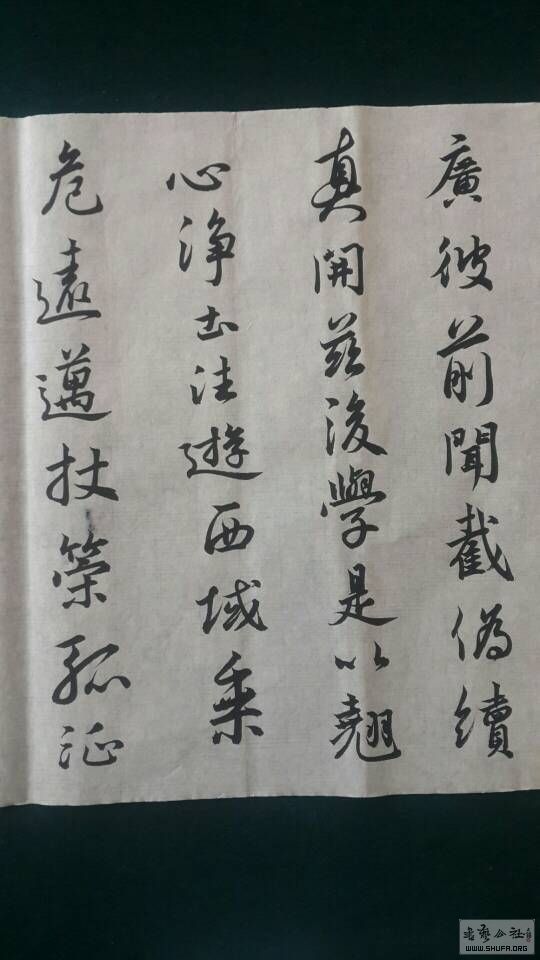 廣彼前聞截偽續
真開茲後學是以翹
心淨土法遊西域乗
危遠邁杖策孤征
WWW.SHUFA.ORG